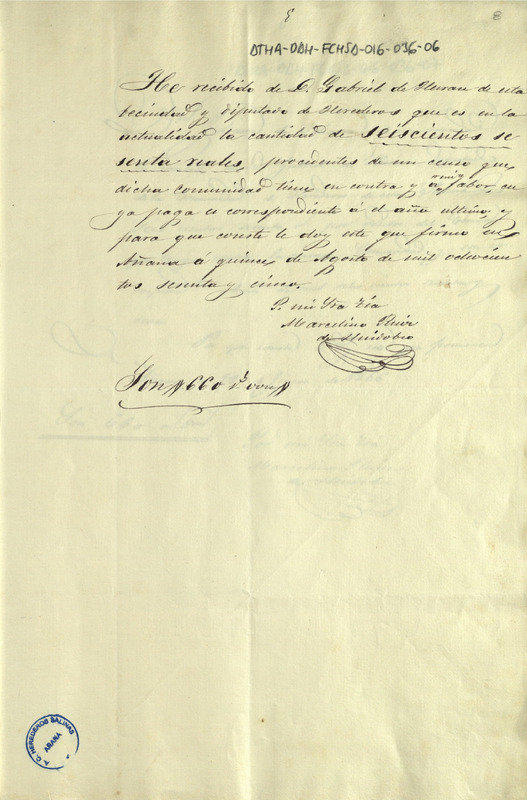 8
ATHA-DAH-FCHSA-016-036-06
He recibido de D. Gabriel de de esta
becindad y diputado de Herederos que es en la
actualidad la cantidad de seiscientos se
senta reales, procedentes de un censo que
dicha comunidad tiene en contra y a mi fabor, cu
ya paga es correspondiente á el año ultimo, y
para que conste le doy este que firmo en
Añana á quince de Agosto de mil ochocien
tos sesenta y cinco.
P. mi Sra Tía
Marcelino Ruiz
de Huidobro
Son 660 rs
A. C. HEREDEROS SALINAS
AÑANA